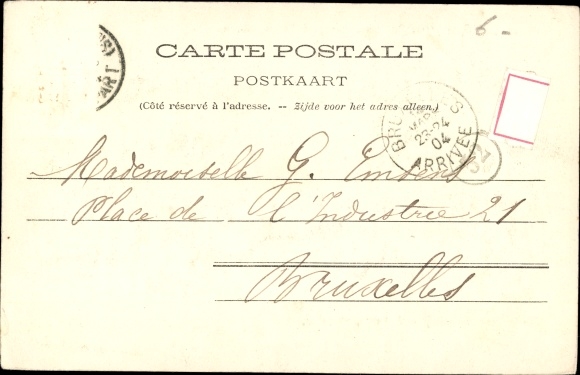 6 -
CARTE POSTALE
POSTKAART
(Côté réservé à l'adresse. -- Zijde voor het adres alleen.)
ART
23-24
04
ARRIVEE
Mademoiselle G. Emsens
Place de l'Industrie 21
Bruxelles